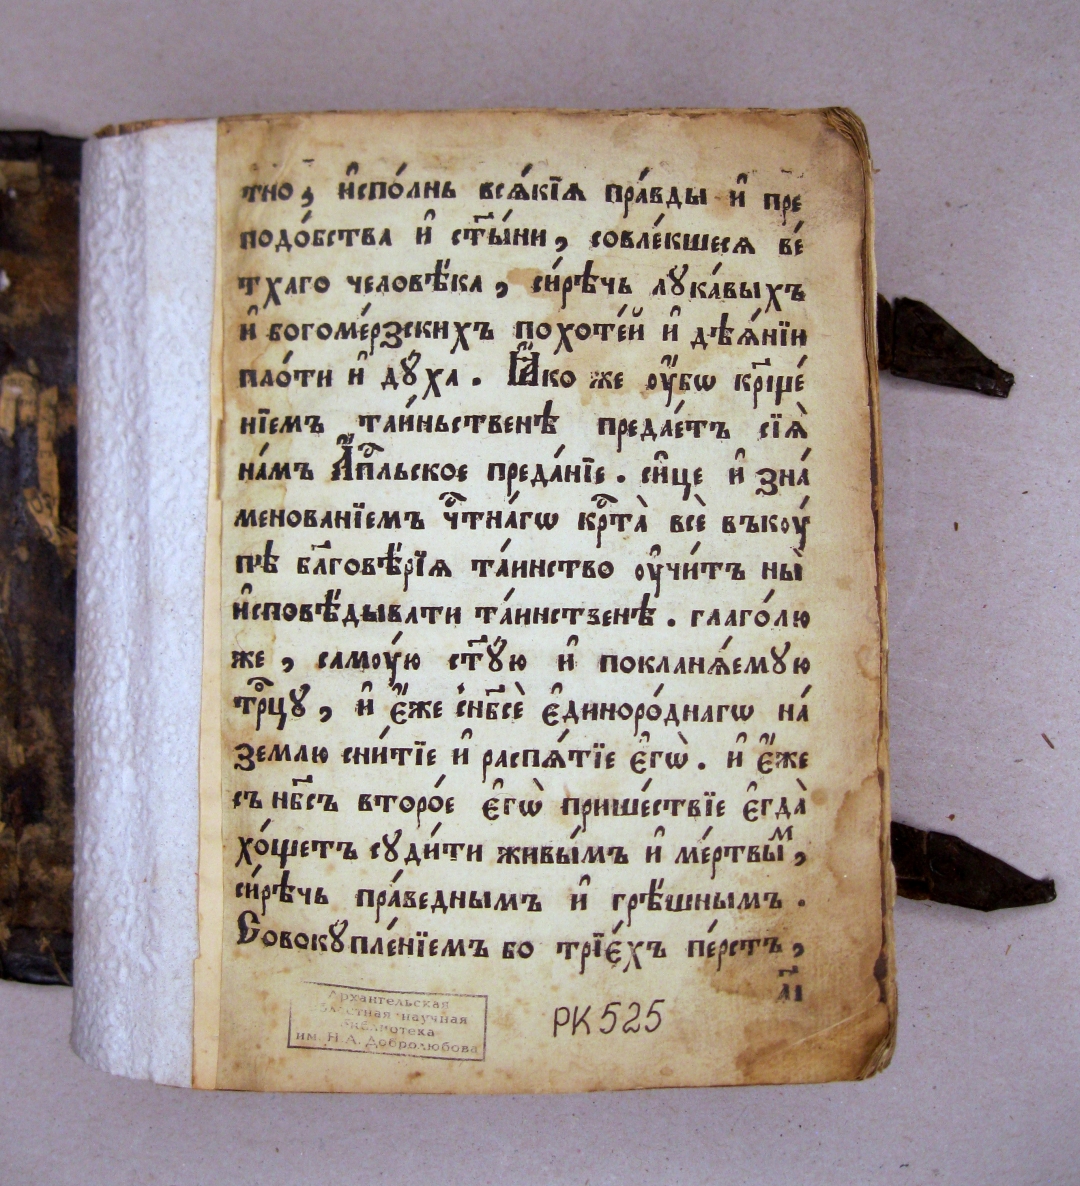 тно, и҆спо́лнь всѧ́кїѧ пра́вды и҆ пре
подо́бства и҆ ст҃ы́ни, совле́кшесѧ ве́
тхаго человѣ́ка, си́рѣчь лꙋка́выхъ
и҆ богоме́рзскихъ похоте́й и҆ дѣѧ́нїи
пло́ти и҆ дꙋ́ха. Ꙗ҆́ко же ᲂу҆́бѡ кр҃ще́
нїемъ таи́ньственѣ предае́тъ сїѧ̀
на́мъ А҆пⷭ҇льское преда́нїе. си́це и҆ зна́
менованїемъ чⷭ҇тна́гѡ крⷭ҇та̀ всѐ въкоу́
пѣ бл҃говѣ́рїѧ та́инство ᲂу҆чи́тъ ны̀
и҆сповѣ́дывати та́инственѣ. глаго́лю
же, самоу́ю ст҃ꙋ́ю и҆ покланѧ́емꙋю
трⷪ҇цꙋ, и҆ є҆́же с̾нб҃сѐ є҆диноро́днагѡ на́
землю сни́тїе и҆ распѧ́тїе є҆гѡ̀. и҆ є҆́же
съ нб҃съ второ́е є҆гѡ̀ прише́ствїе є҆гда̀
хо́щетъ сꙋди́ти живы́мъ и҆ ме́ртвыⷨ,
си́рѣчь пра́веднымъ и҆ грѣ́шнымъ.
Совокꙋпле́нїемъ бо трїе́хъ пе́рстъ,
а҃і
Архангельская
областная научная
библиотека
им. Н.А. Добролюбова
РК 525